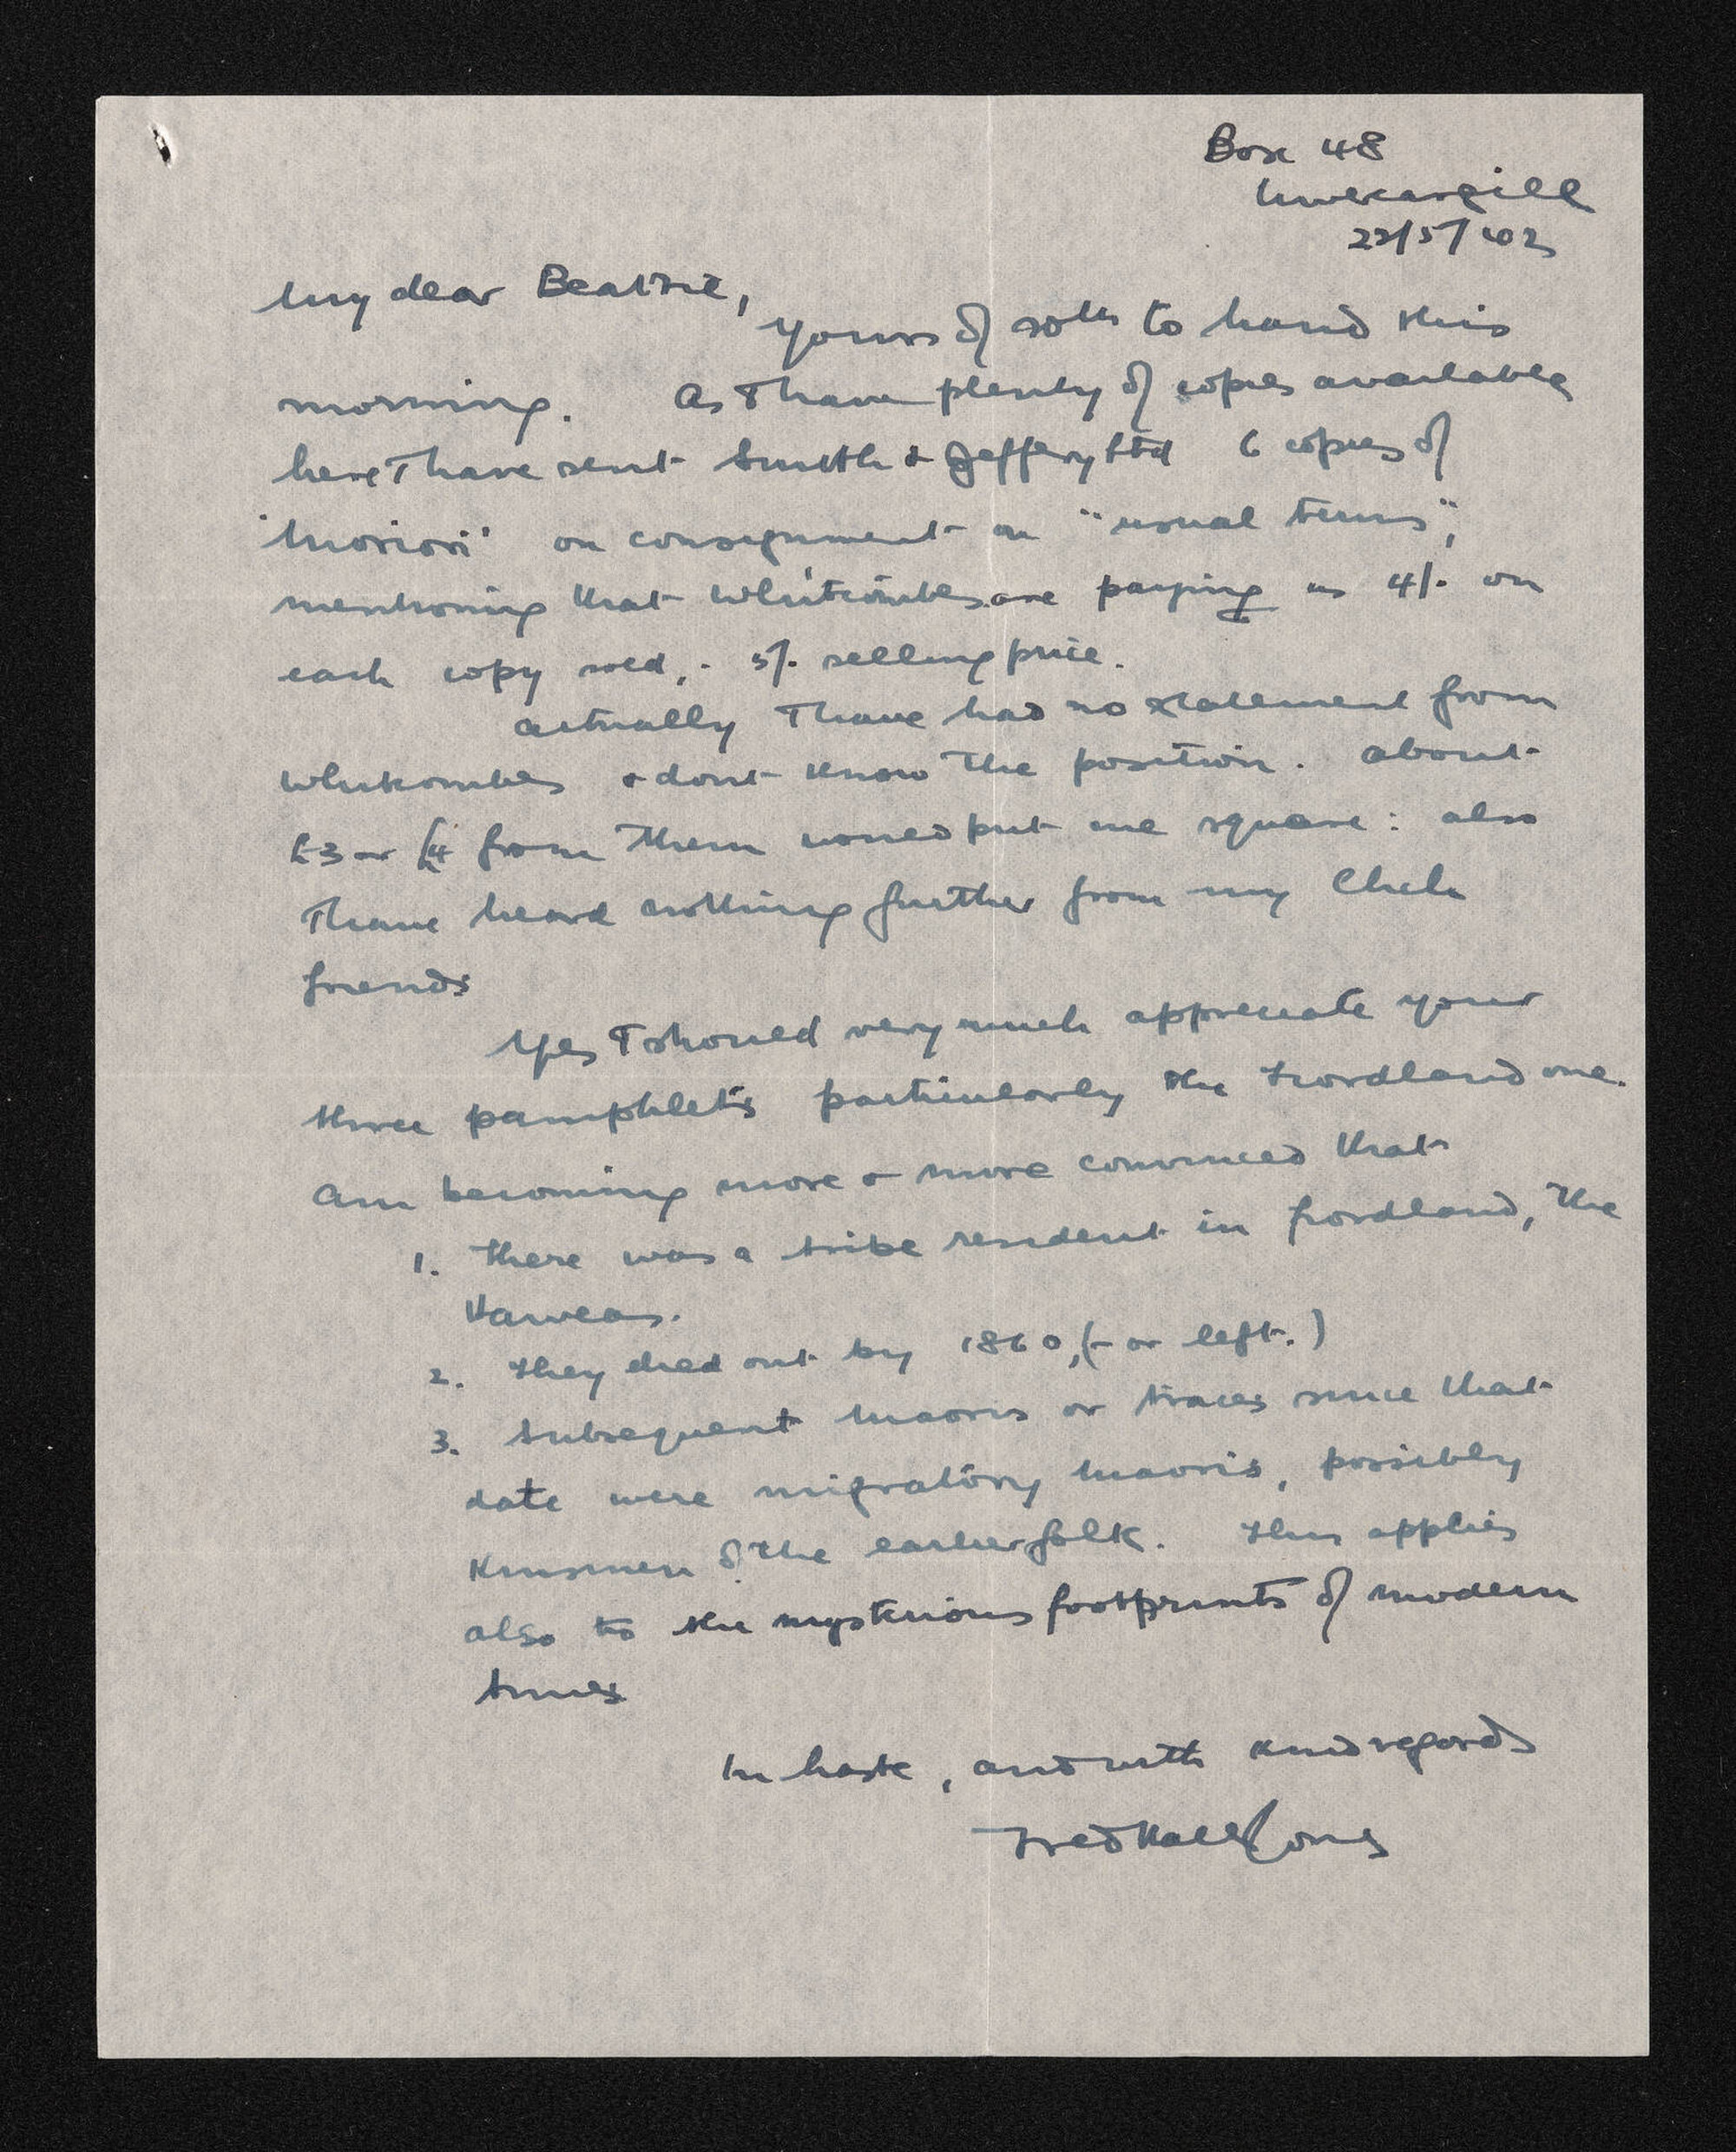 Box 48
Invercargill
22/5/
My dear Beattie,
Yours of 20th to hand this
morning. As I have plenty of copies available
here I have sent Smith & Jeffery Ltd 6 copies of
'Moriori' on consignment on "usual terms",
mentioning that Whitcombes are paying us 4/- on
each copy sold, - 5/- selling price.
Actually I have had no statement from
Whitcombes & dont know the position. About
£3 or £4 from them would put me square: also
I have heard nothing further from my Chch
friends
Yes I should very much appreciate your
three pamphlets particularly the Fiordland one.
Am becoming more & more convinced that
1. There was a tribe resident in Fiordland, the
Haweas.
2. They died out by 1860, (- or left.)
3. Subsequent Maoris or traces since that
date were migratory Maoris, possibly
kinsmen of the earlier folk. This applies
also to the mysterious footprints of modern
times
In haste, and with kind regards
Fred Hall Jones